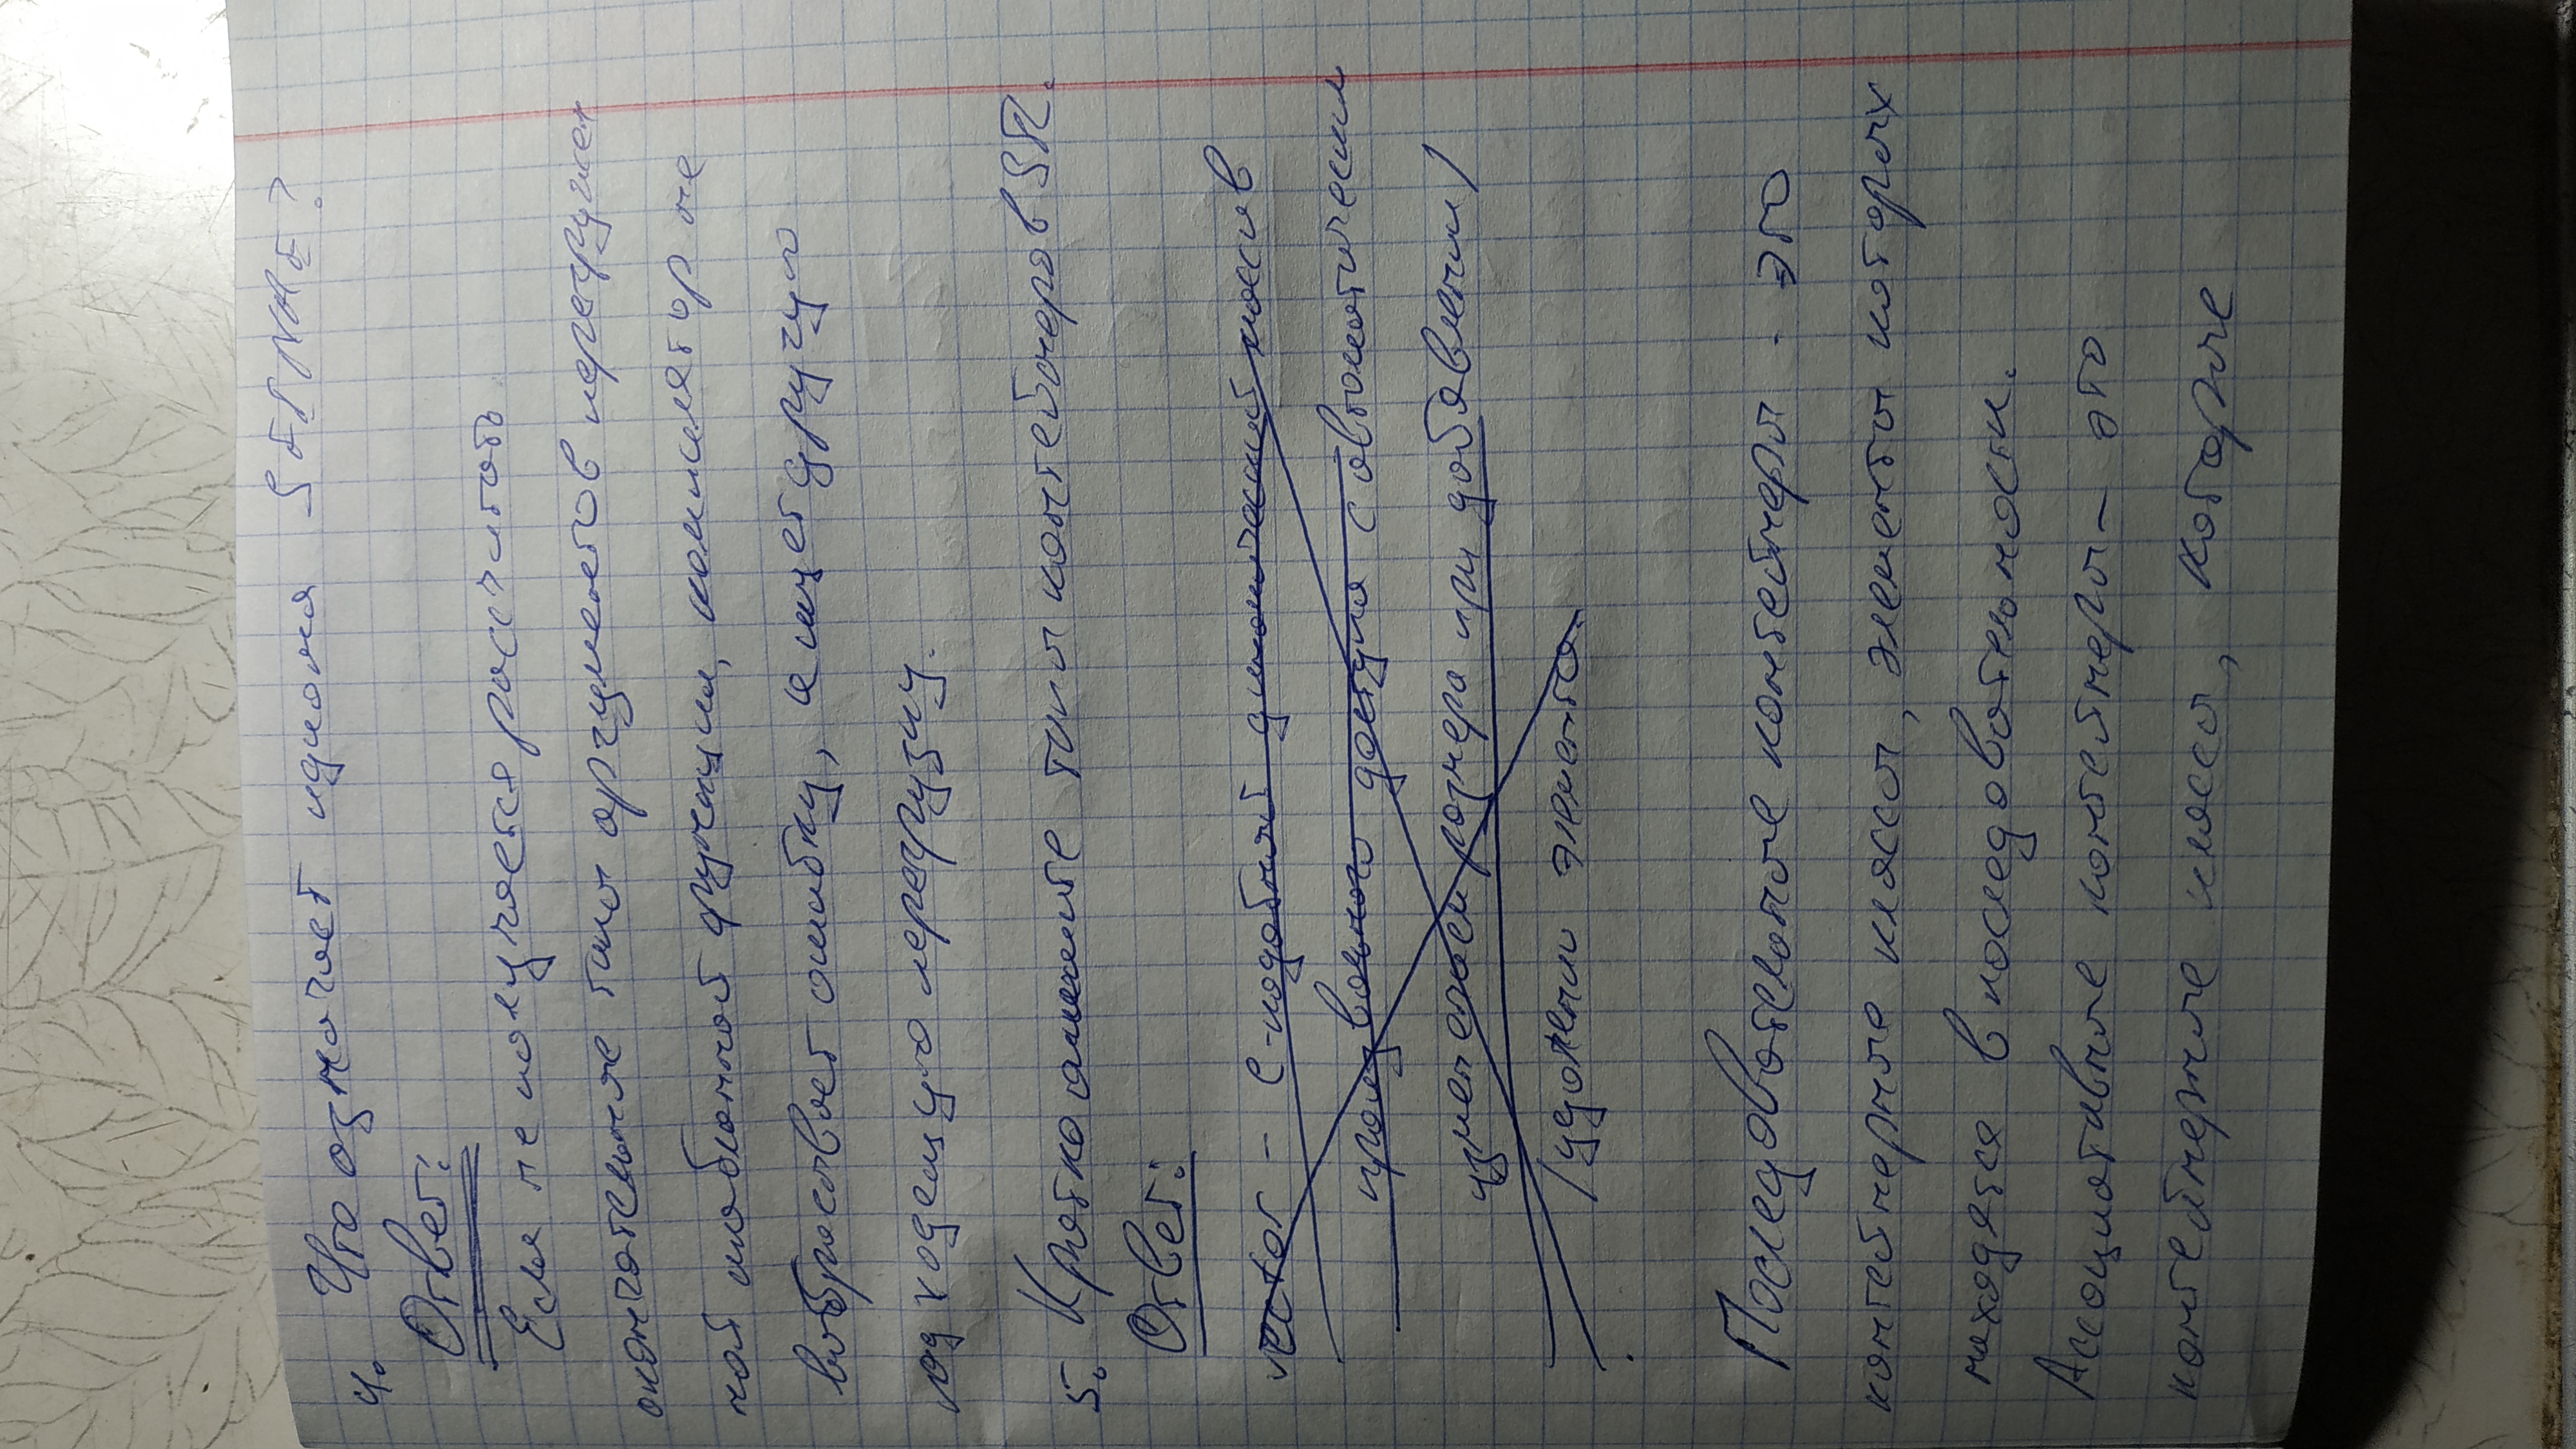 4. Что означает идиома SFINAE?
Ответ:
Если не получается рассчитать
окончательные типы аргументов перегружен
ной шаблонной функции, компилятор не
выбрасывает ошибку, а ищет другую
подходящую перегрузку.
5. Кратко опишите типы контейнеров STL.
Ответ:
vector - С-подобный динамический массив
произвольного доступа с автоматическим
изменением размера при добавлении/
/удалении элемента.
Последовательные контейнеры - это
контейнерные классы, элементы которых
находятся в последовательности.
Ассоциативные контейнеры - это
контейнерные классы, которые